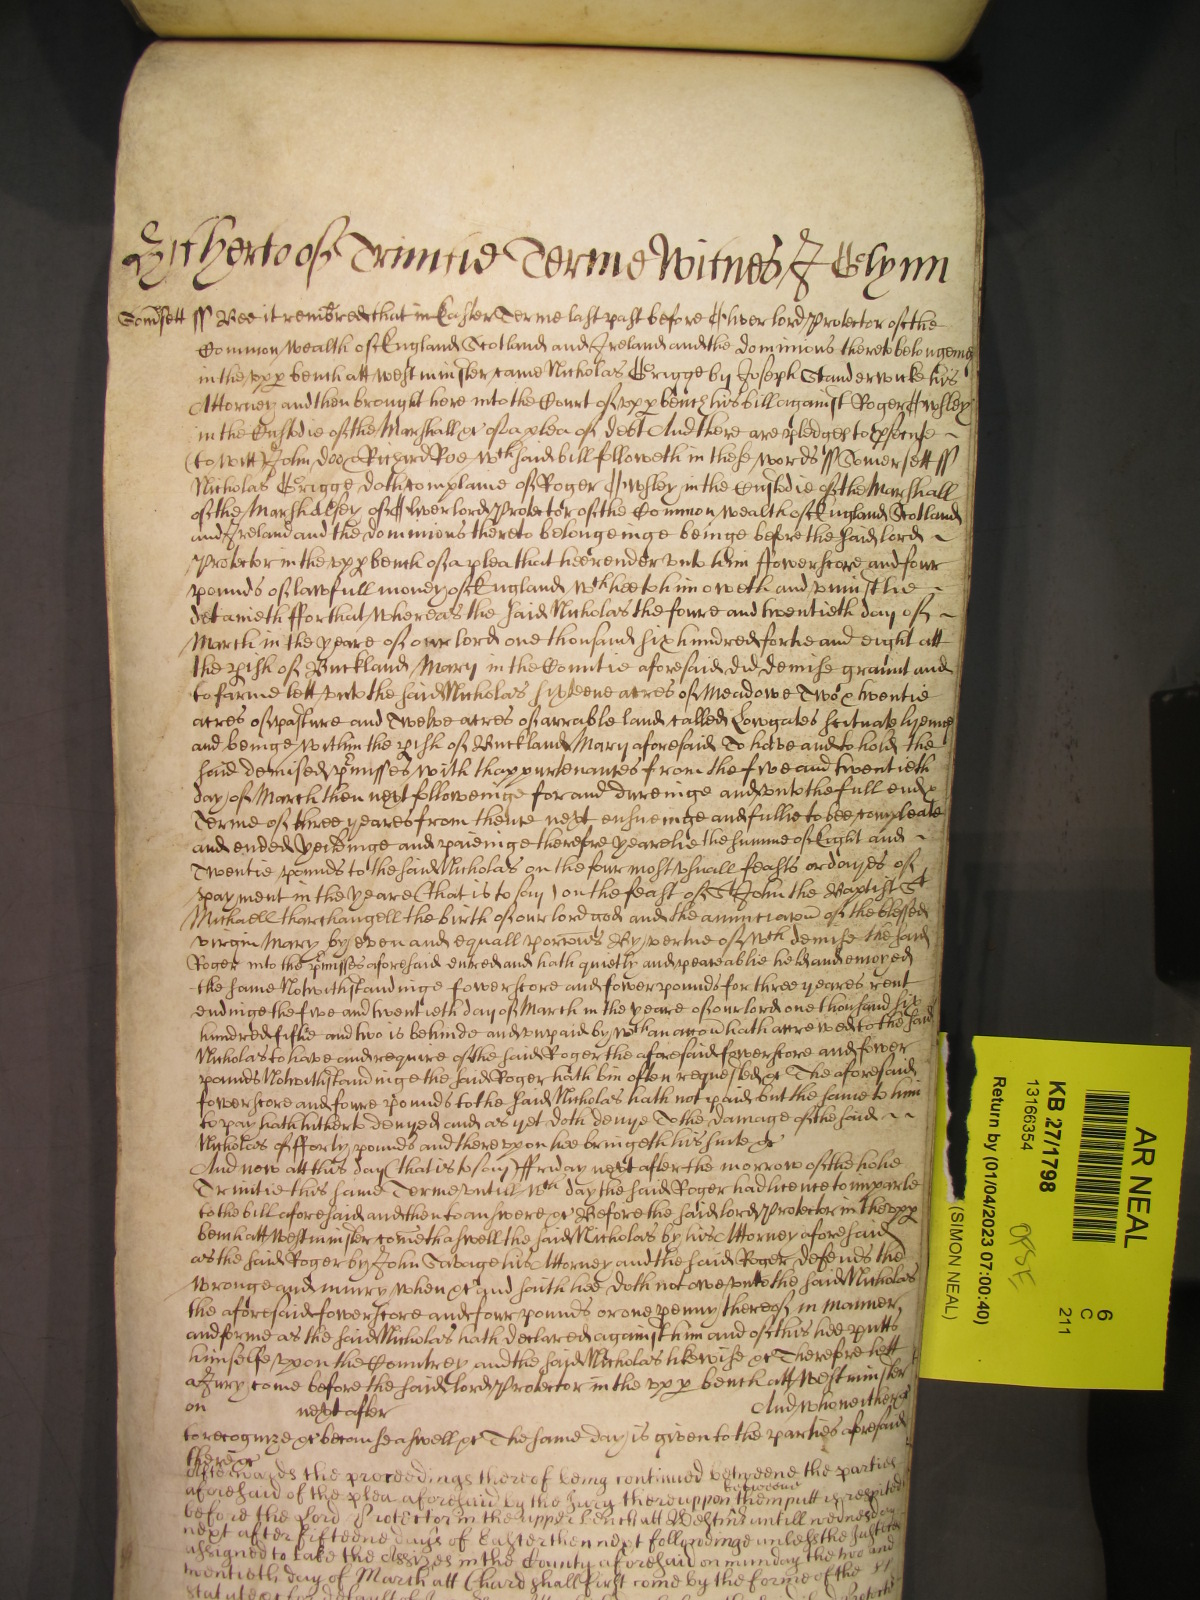 Hitherto of Trinitie Terme Witnes J Glynn
Somsett ss Bee it remembred that in Easter Terme last past before Oliver lord Protector of the
Common Wealth of England Scotland and Ireland and the dominions thereto belongeing
in the upp bench att Westminster came Nicholas Grigge by Joseph Standerwicke his
Attorney and then brought here into the Court of upp bench his bill against Roger
in the Custodie of the Marshall &c of a plea of debt And there are pledges to
(to witt) John Doe & Richard Roe wch said bill followeth in these words ss Somersett ss
Nicholas Grigge doth complaine of Roger in the Custodie of the Marshall
of the Marshalsey of Oliver lord Protector of the Common Wealth of England Scotland
and Ireland and the dominions thereto belongeinge beinge before the said lord
Protector in the upp bench of a plea that hee render unto him fowerscore and four
pounds of lawfull money of England wch hee to him oweth and uniustlie
detaineth ffor that whereas the said Nicholas the foure and twentieth day of
March in the yeare of our lord one thousand six hundred fortie and eight att
the pish of Buckland Mary in the Countie aforesaid did demise graunt and
to farme lett unto the said Nicholas sixteene acres of Meadowe Two & twentie
acres of pasture and Twelve acres of arrable land called Lowgates scituate lyeinge
and beinge within the pish of Buckland Mary aforesaid To have and to hold the
said demised pmisses with thappurtenances from the five and twentieth
day of March then next followeinge for and dureinge and unto the full end &
Terme of three yeares from thence next ensueinge and fullie to bee compleate
and ended yeildinge and paieinge therefore yearelie the summe of Eight and
Twentie pounds to the said Nicholas on the four most usuall feasts or dayes of
payment in the yeare (that is to say) on the feast of St John the Baptist St
Michaell tharchangell the birth of our lord god and the annunciacon of the blessed
virgin Mary by even and equall porcons By vertue of wch demise the said
Roger into the pmisses aforesaid entred and hath quietly and peaceablie held and enioyed
the same Notwithstandinge fowerscore and fower pounds for three yeares rent
endinge the five and twentieth day of March in the yeare of our lord one thousand six
hundred fiftie and two is behinde and unpaid by wch an accon hath accrewed to the said
Nicholas to have and require of the said Roger the aforesaid fowerscore and fower
pounds Notwithstandinge the said Roger hath bin often requested &c The aforesaid
fowerscore and foure pounds to the said Nicholas hath not paid but the same to him
to pay hath hitherto denyed and as yet doth denye To the damage of the said
Nicholas of fforty pounds and thereupon hee bringeth his suite &c
And now att this day (that is to say) ffriday next after the morrow of the holie
Trinitie this same Terme untill wch day the said Roger had licence to imparle
to the bill aforesaid and then to answere &c Before the said lord Protector in the upp
bench att Westminster cometh aswell the said Nicholas by his Attorney aforesaid
as the said Roger by John Savage his Attorney and the said Roger defends the
wronge and iniury when &c And saith hee doth not owe unto the said Nicholas
the aforesaid fowerscore and four pounds or one penny thereof in manner
and forme as the said Nicholas hath declared against him and of this hee putts
himselfe upon the Countrey and the said Nicholas likewise &c Therefore lett
a Jury come before the said lord Protector in the upp bench att Westminster
on next after And who neither &c
to recognize &c because aswell &c The same day is given to the parties aforesaid
there &c
Afterwards the proceedings thereof being continued betweene the parties
aforesaid of the plea aforesaid by the Jury thereuppon betweene them putt is respited
before the Lord Protector in the upper bench att Westmr untill wednesday
next after fifteene days of Easter then next followinge unlesse the Justices
assigned to take the Assizes in the County aforesaid on munday the two and
twentieth day of March att Chard shall first come by the forme of the
AR NEAL
6
C
211
KB 27/1798
13166354
Return by (01/04/2023 07:00:40)
(SIMON NEAL)